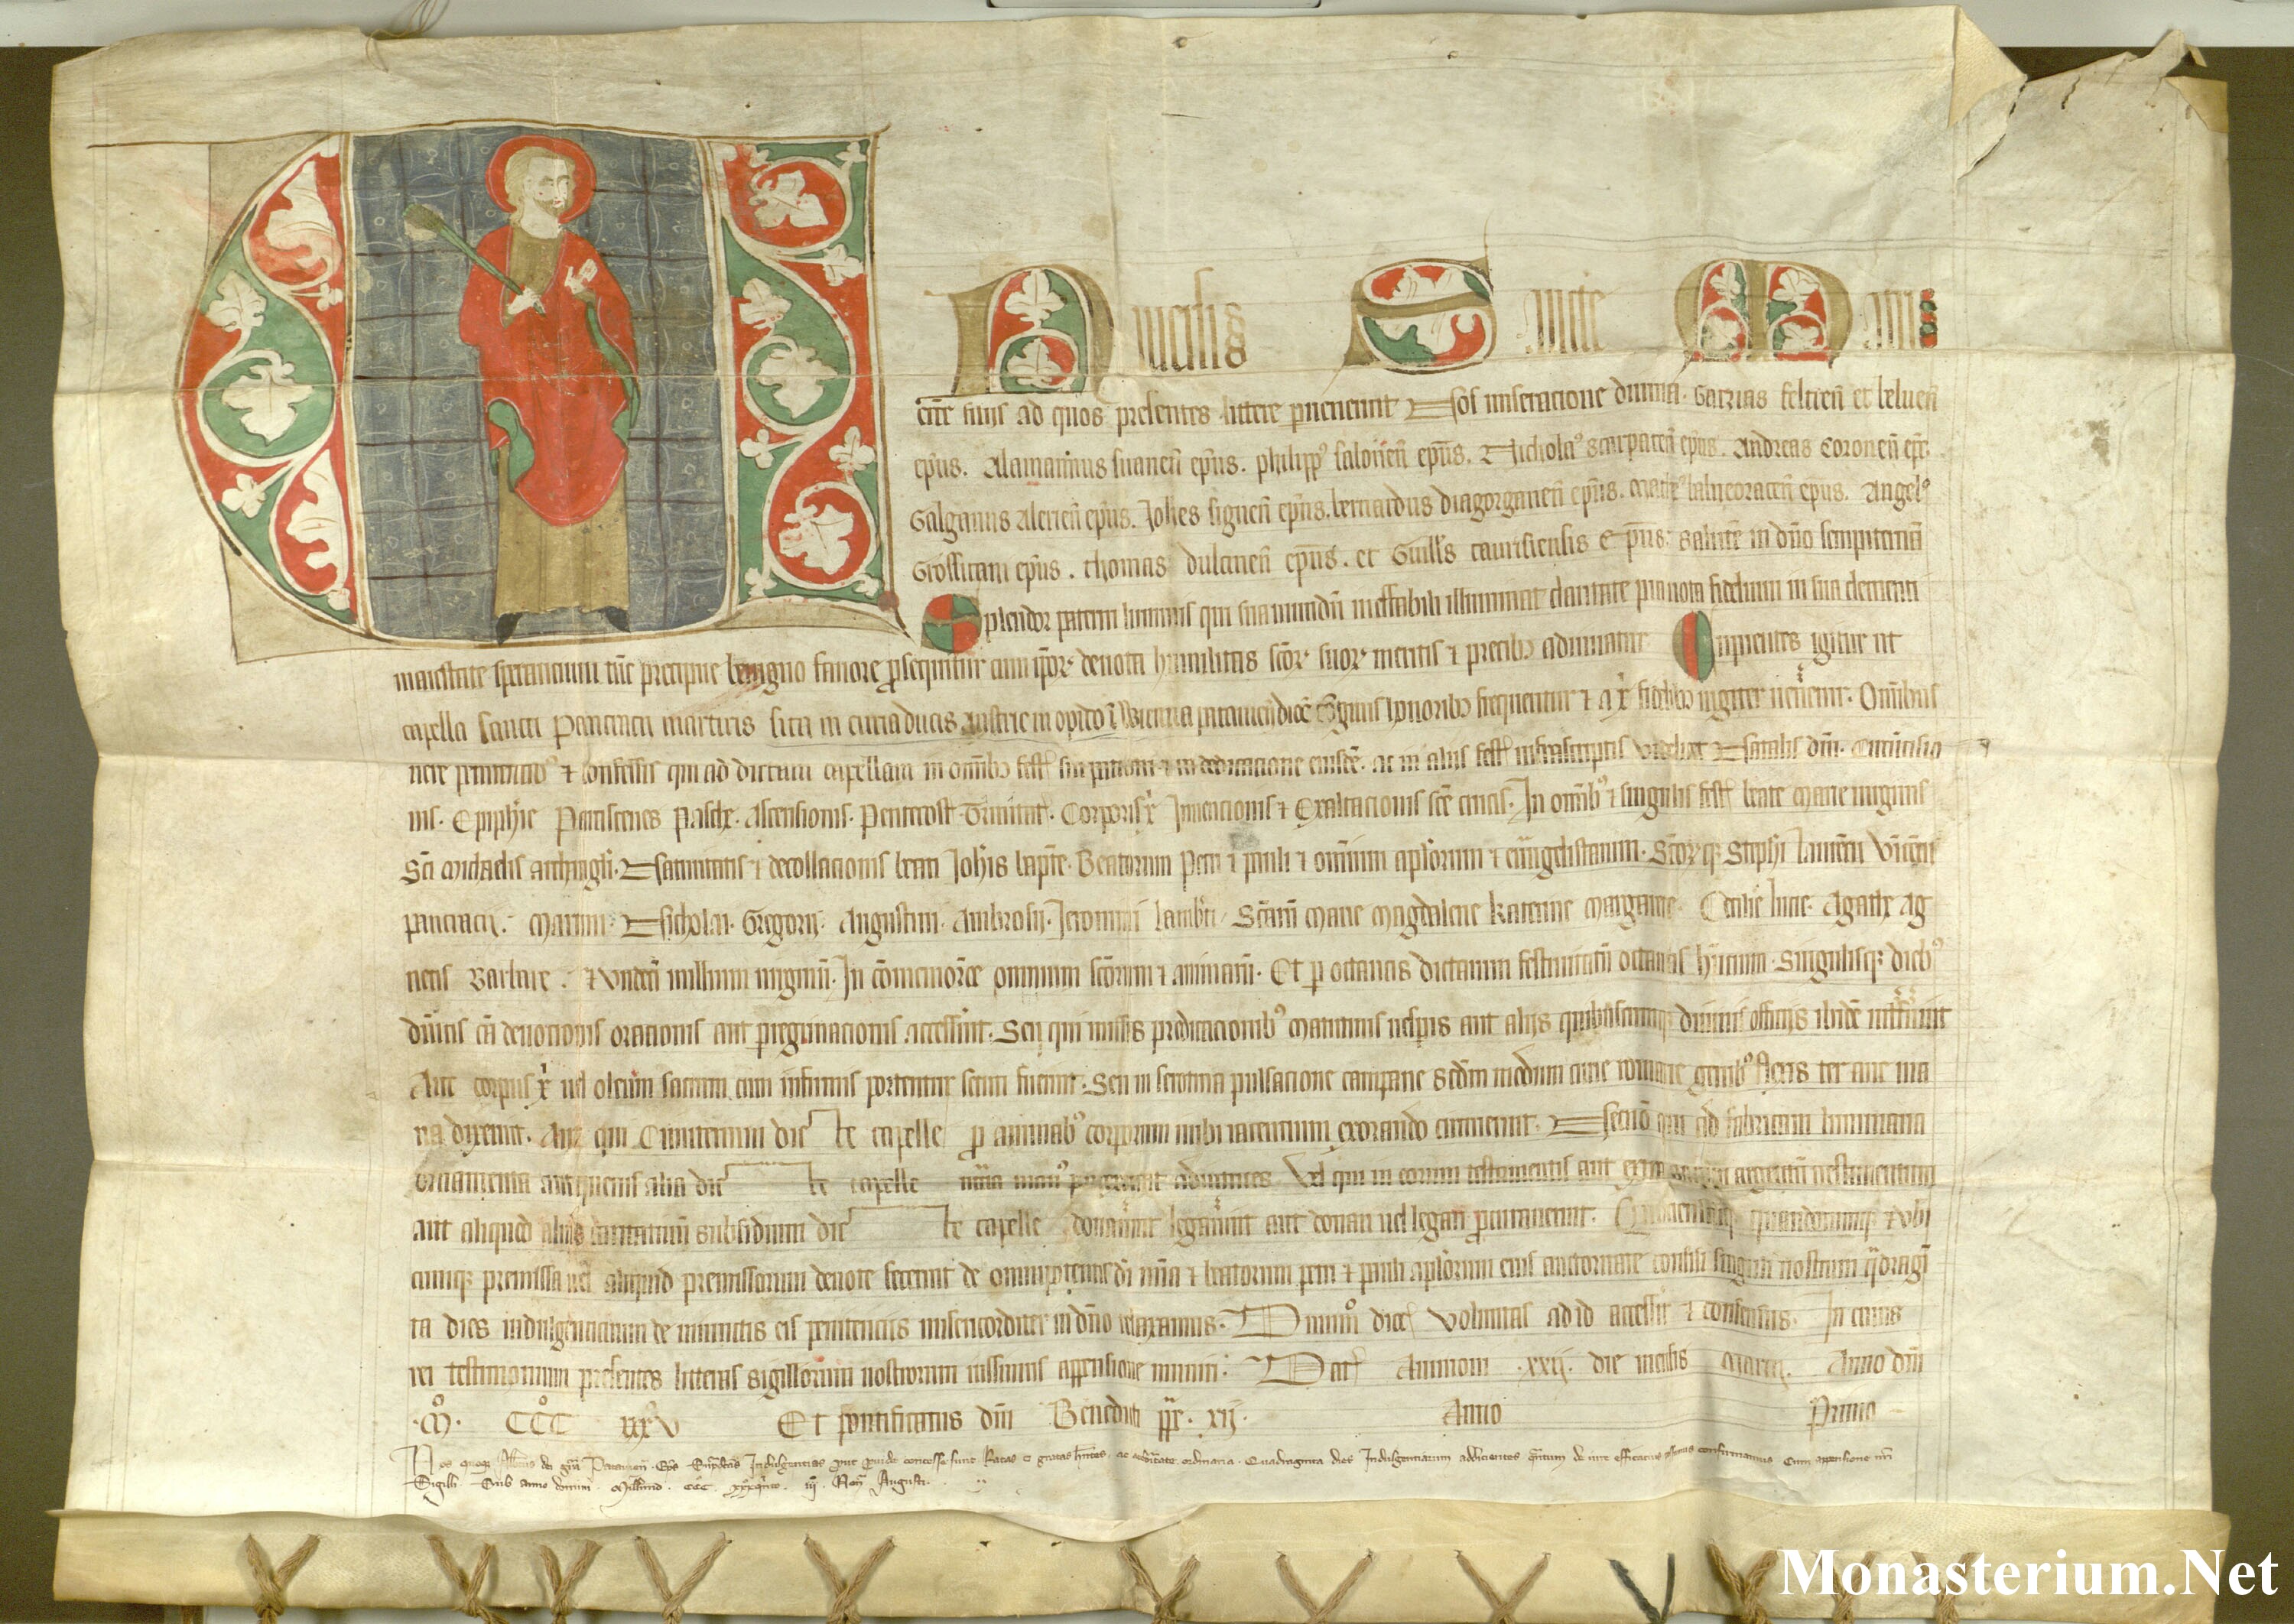 UNiuersis Sancte Matris
eccl̄e filijs ad quos presentes littere peruenerint Nos miseracione diuina. Gorzias feltren̄ et beluen̄
ep̄us. Alamannus suanen̄ ep̄us. philippꝰ salonen̄ ep̄us. Nicholaꝰ scarpaten̄ ep̄us. Andreas Coronen̄ ep̄c.
Galganus Alerien̄ ep̄us. Joh̄es signen̄ ep̄us. bernardus diagorganen̄ ep̄us. Mathꝰ balneoracen̄ ep̄us. Angelꝰ
Grossitan̄ ep̄us. thomas dulcinen̄ ep̄us. et Guill's taurisiensis Ep̄us. salutē in dn̄o sempiternā
Splendor paterni luminis qui sua mundū ineffabili illuminat claritate pia uota fidelium in sua clementi
maiestate sperancium tūc precipue benigno fauore ꝓsequitur cum ip̄oꝝ deuota humilitas sc̄oꝝ suoꝝ meritis ⁊ precibꝫ adiuuatur Cupientes igitur ut
capella sancti Pancracii martiris sita in curia ducis Austrie in opido ī Wienna patauien̄ dioc̄ congruis honoribꝫ frequentetur ⁊ a xp̄i fidelibꝫ iugiter ueneretur. Omnibus
uere penitentibꝰ ⁊ confessis qui ad dictam capellam in omībꝫ fest' sui patroni ⁊ in dedicacione eiusdē. ac in aliis fest' infrascriptis videlicet Natalis dn̄i. Circūcisio
nis. Epiph̄ie Parasceues Pasche. Ascensionis. Pentecost' Trinitat'. Corporis xp̄i Inuencionis ⁊ Exaltacionis sc̄e crucis. In omībꝰ ⁊ singulis fest' beate Marie uirginis
Sc̄i Michaelis archangli. Natiuitatis ⁊ decollacionis beati Joh̄is bapt̄e. Beatorum Petri ⁊ pauli ⁊ omnium apl̄orum ⁊ euangelistarum. Sc̄orꝙ Steph̄i Laurēcii Vincēcii
pancracii. Martini. Nicholai. Gregorij. Augustini. Ambrosij. Jeronimi Lamb'ti. Sc̄arū Marie Magdalene katerine Margarete. Cecilie lucie. Agathe Ag
netis Barbare. ⁊ Vndecī millium uirginū. In cōmemor̄ce omnium sc̄orum ⁊ animarū. Et p octauas dictarum festiuitatū octauas h̄ncium. Singulisqꝫ diebꝰ
dn̄icis cā deuocionis oracionis aut peregrinacionis accesserint. Seu qui missis predicacionibꝰ Matutinis uesperis aut alijs quibuscumqꝫ diuinis officijs ibidē interfuerint
Aut corpus xp̄i uel oleum sacrum cum infirmis portentur secuti fuerint. Seu in serotina pulsacione campane scdm̄ modum curie romane genibꝰ flexis ter aue ma
ria dixerint. Aut qui Cimiterium dic te capelle ꝓ animabꝰ corporum inibi iacentium exorando circuierint. Necnō qui ad fabricam luminaria
ornamenta aut queuis alia dic te capelle necessaria manꝰ porrexerint adiutrices Vel qui in eorum testamentis aut extra aurum argentū uestimentum
aut aliquod aliud caritatiuū subsidium dic te capelle donauerint legauerint aut donari uel legari procurauerint. Quocienscūqꝫ quandocumqꝫ ⁊ vbi
cumqꝫ premissa uel aliquid premissorum deuote fecerint de omnipotentis dī mīa ⁊ beatorum petri ⁊ pauli apl̄orum eius auctoritate confisi singuli nostrum q̄dragī
ta dies indulgenciarum de iniunctis eis penitenciis misericorditer in dn̄o relaxamus. Dummō dioc' voluntas ad id accesserit ⁊ consensus. In cuius
rei testimonium presentes litteras sigillorum nostrorum iussimus appensione muniri. Dat' Auinion̄ .xxij. die mensis Marcij. Anno dn̄i
.Mͦ. CCCͦ xxxͦv Et pontificatus dn̄i Benedicti p̄p. xij. Anno Primo
Nos quoqꝫ Alb̄tus dei gr̄a Patauien̄. Ep̄s. Sup̄dc̄as Indulgencias prout prouide concesse sunt Ratas et gratas h̄ntes. ac auctoritate ordinaria. Quadraginta dies Indulgentiarum addicientes q̄ntum de iure efficacius possumus confirmamus Cum appensione nr̄i
Sigilli. Sub anno domini. Mill'imo. CCC. xxxquīto. iij. Non̄ Augusti.
Monasterium.Net